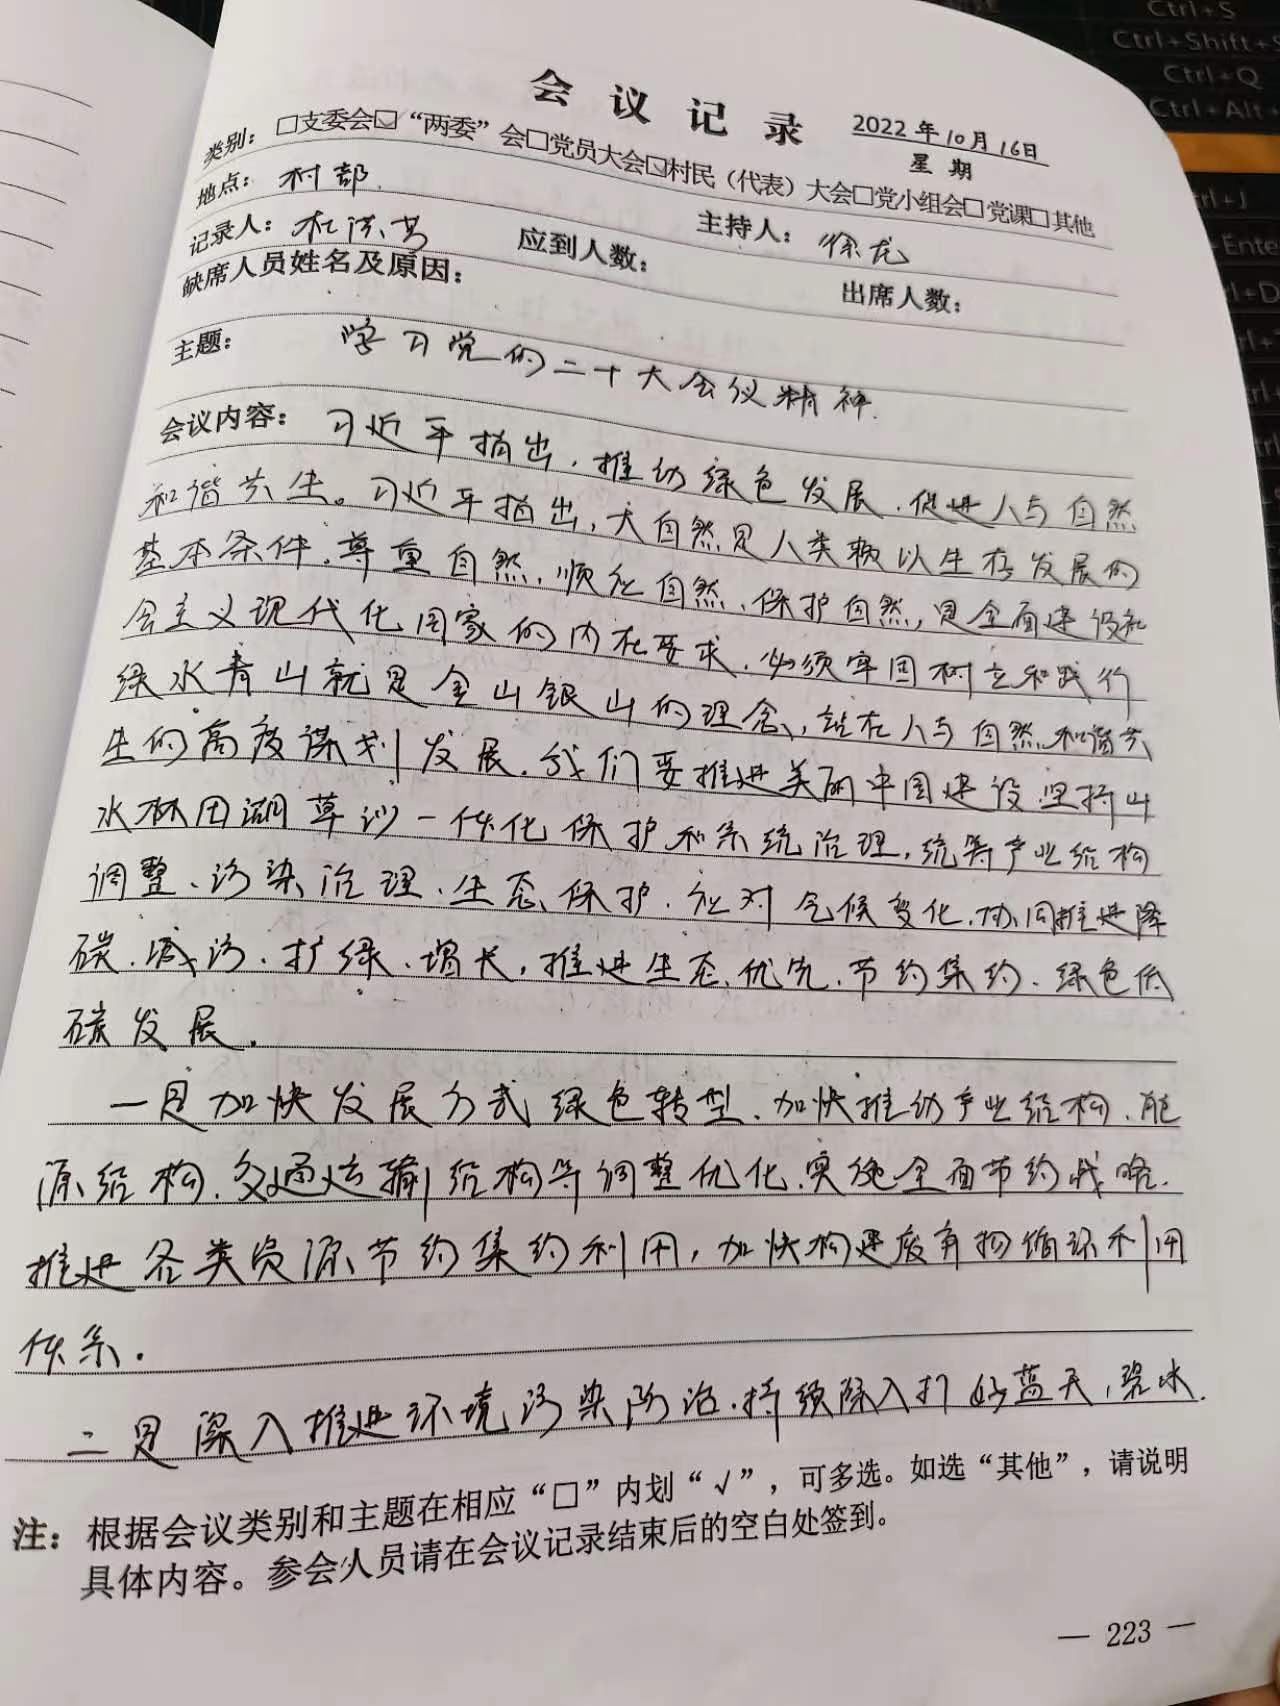 Ctrl+S
Ctrl+Shift+S
Ctrl+Q
Ctrl+Alt+
会议记录
2022年10月16日
星期
类别：□支委会☑“两委”会□党员大会☑村民（代表）大会□党小组会□党课□其他
地点：村部 主持人：徐龙
记录人：杜 应到人数： 出席人数：
缺席人员姓名及原因：
主题：学习党的二十大会议精神.
会议内容：习近平指出，推动绿色发展，促进人与自然
和谐共生。习近平指出，大自然是人类赖以生存发展的
基本条件，尊重自然、顺应自然、保护自然，是全面建设社
会主义现代化国家的内在要求，必须牢固树立和践行
绿水青山就是金山银山的理念，站在人与自然和谐共
生的高度谋划发展，我们要推进美丽中国建设坚持山
水林田湖草沙一体化保护和系统治理，统筹产业结构
调整、污染治理、生态保护、应对气候变化，协同推进降
碳、减污、扩绿、增长，推进生态优先、节约集约、绿色低
碳发展。
一是加快发展方式绿色转型、加快推动产业结构、能
源结构、交通运输结构等调整优化、实施全面节约战略.
推进各类资源节约集约利用，加快构建废弃物循环利用
体系.
二是深入推进环境污染防治、持续深入打好蓝天、碧水.
注：根据会议类别和主题在相应“□”内划“√”，可多选。如选“其他”，请说明
具体内容。参会人员请在会议记录结束后的空白处签到。
— 223 —